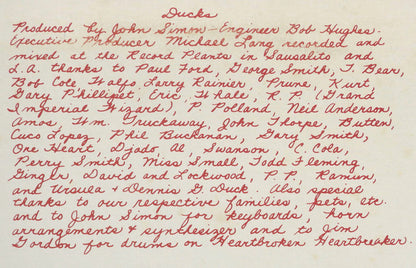 Ducks
Produced by John Simon - Engineer Bob Hughes.
Executive Producer Michael Lang recorded and
mixed at the Record Plants in Sausalito and
L.A. thanks to Paul Ford, George Smith, T. Bear,
Bob Cole, Larry Rainier, Prune, Kurt,
Gary Phillipet, Eric, R.P. (Grand
Imperial Wizard), P. Polland, Neil Anderson,
Amos, Wm. Truckaway, John Thorpe, Butten,
Cuco Lopez, Phil Buchanan, Gary Smith,
One Heart, Djado, Al, Swanson, C. Cola,
Perry Smith, Miss Small, Todd Fleming
Ginger, David and Lockwood, P.P., Ramon,
and Ursula & Dennis G. Duck. Also special
thanks to our respective families, pets, etc.
and to John Simon for keyboards, horn
arrangements & synthesizer and to Jim
Gordon for drums on Heartbroken Heartbreaker.